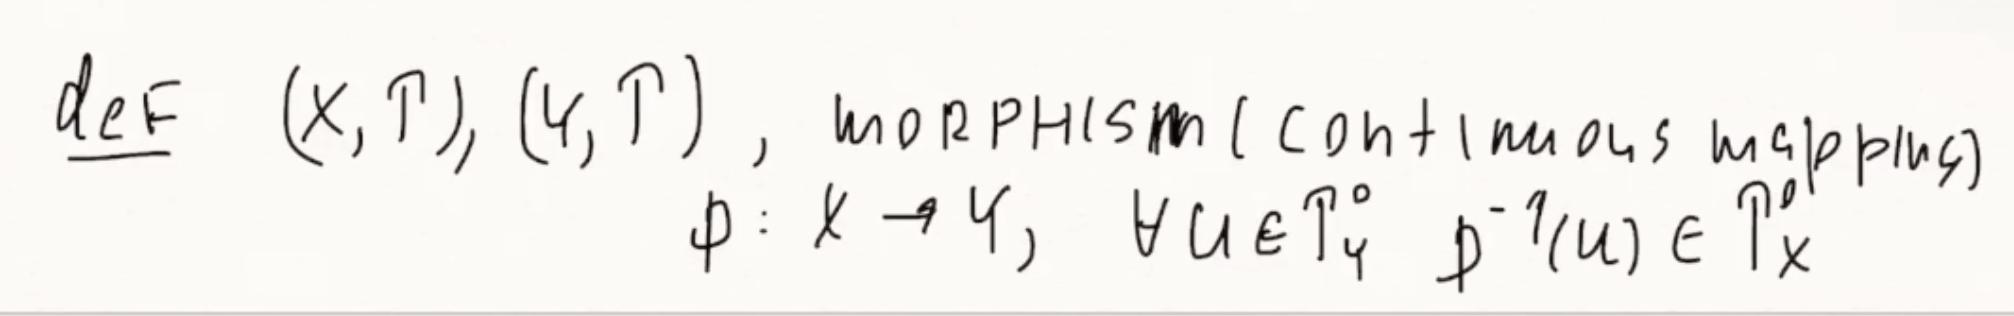 def (X, T), (Y, T), MORPHISM (continuous mapping)
p: X → Y, ∀U ∈ T°_Y p⁻¹(U) ∈ T°_X